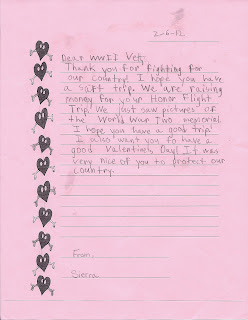 2-6-12
Dear WWII Vet,
Thank you for fighting for
our country! I hope you have
a safe trip. We are raising
money for your Honor Flight
Trip. We just saw pictures of
the World War Two memorial.
I hope you have a good trip!
I also want you to have a
good Valentines Day! It was
very nice of you to protect our
country.
From,
Sierra